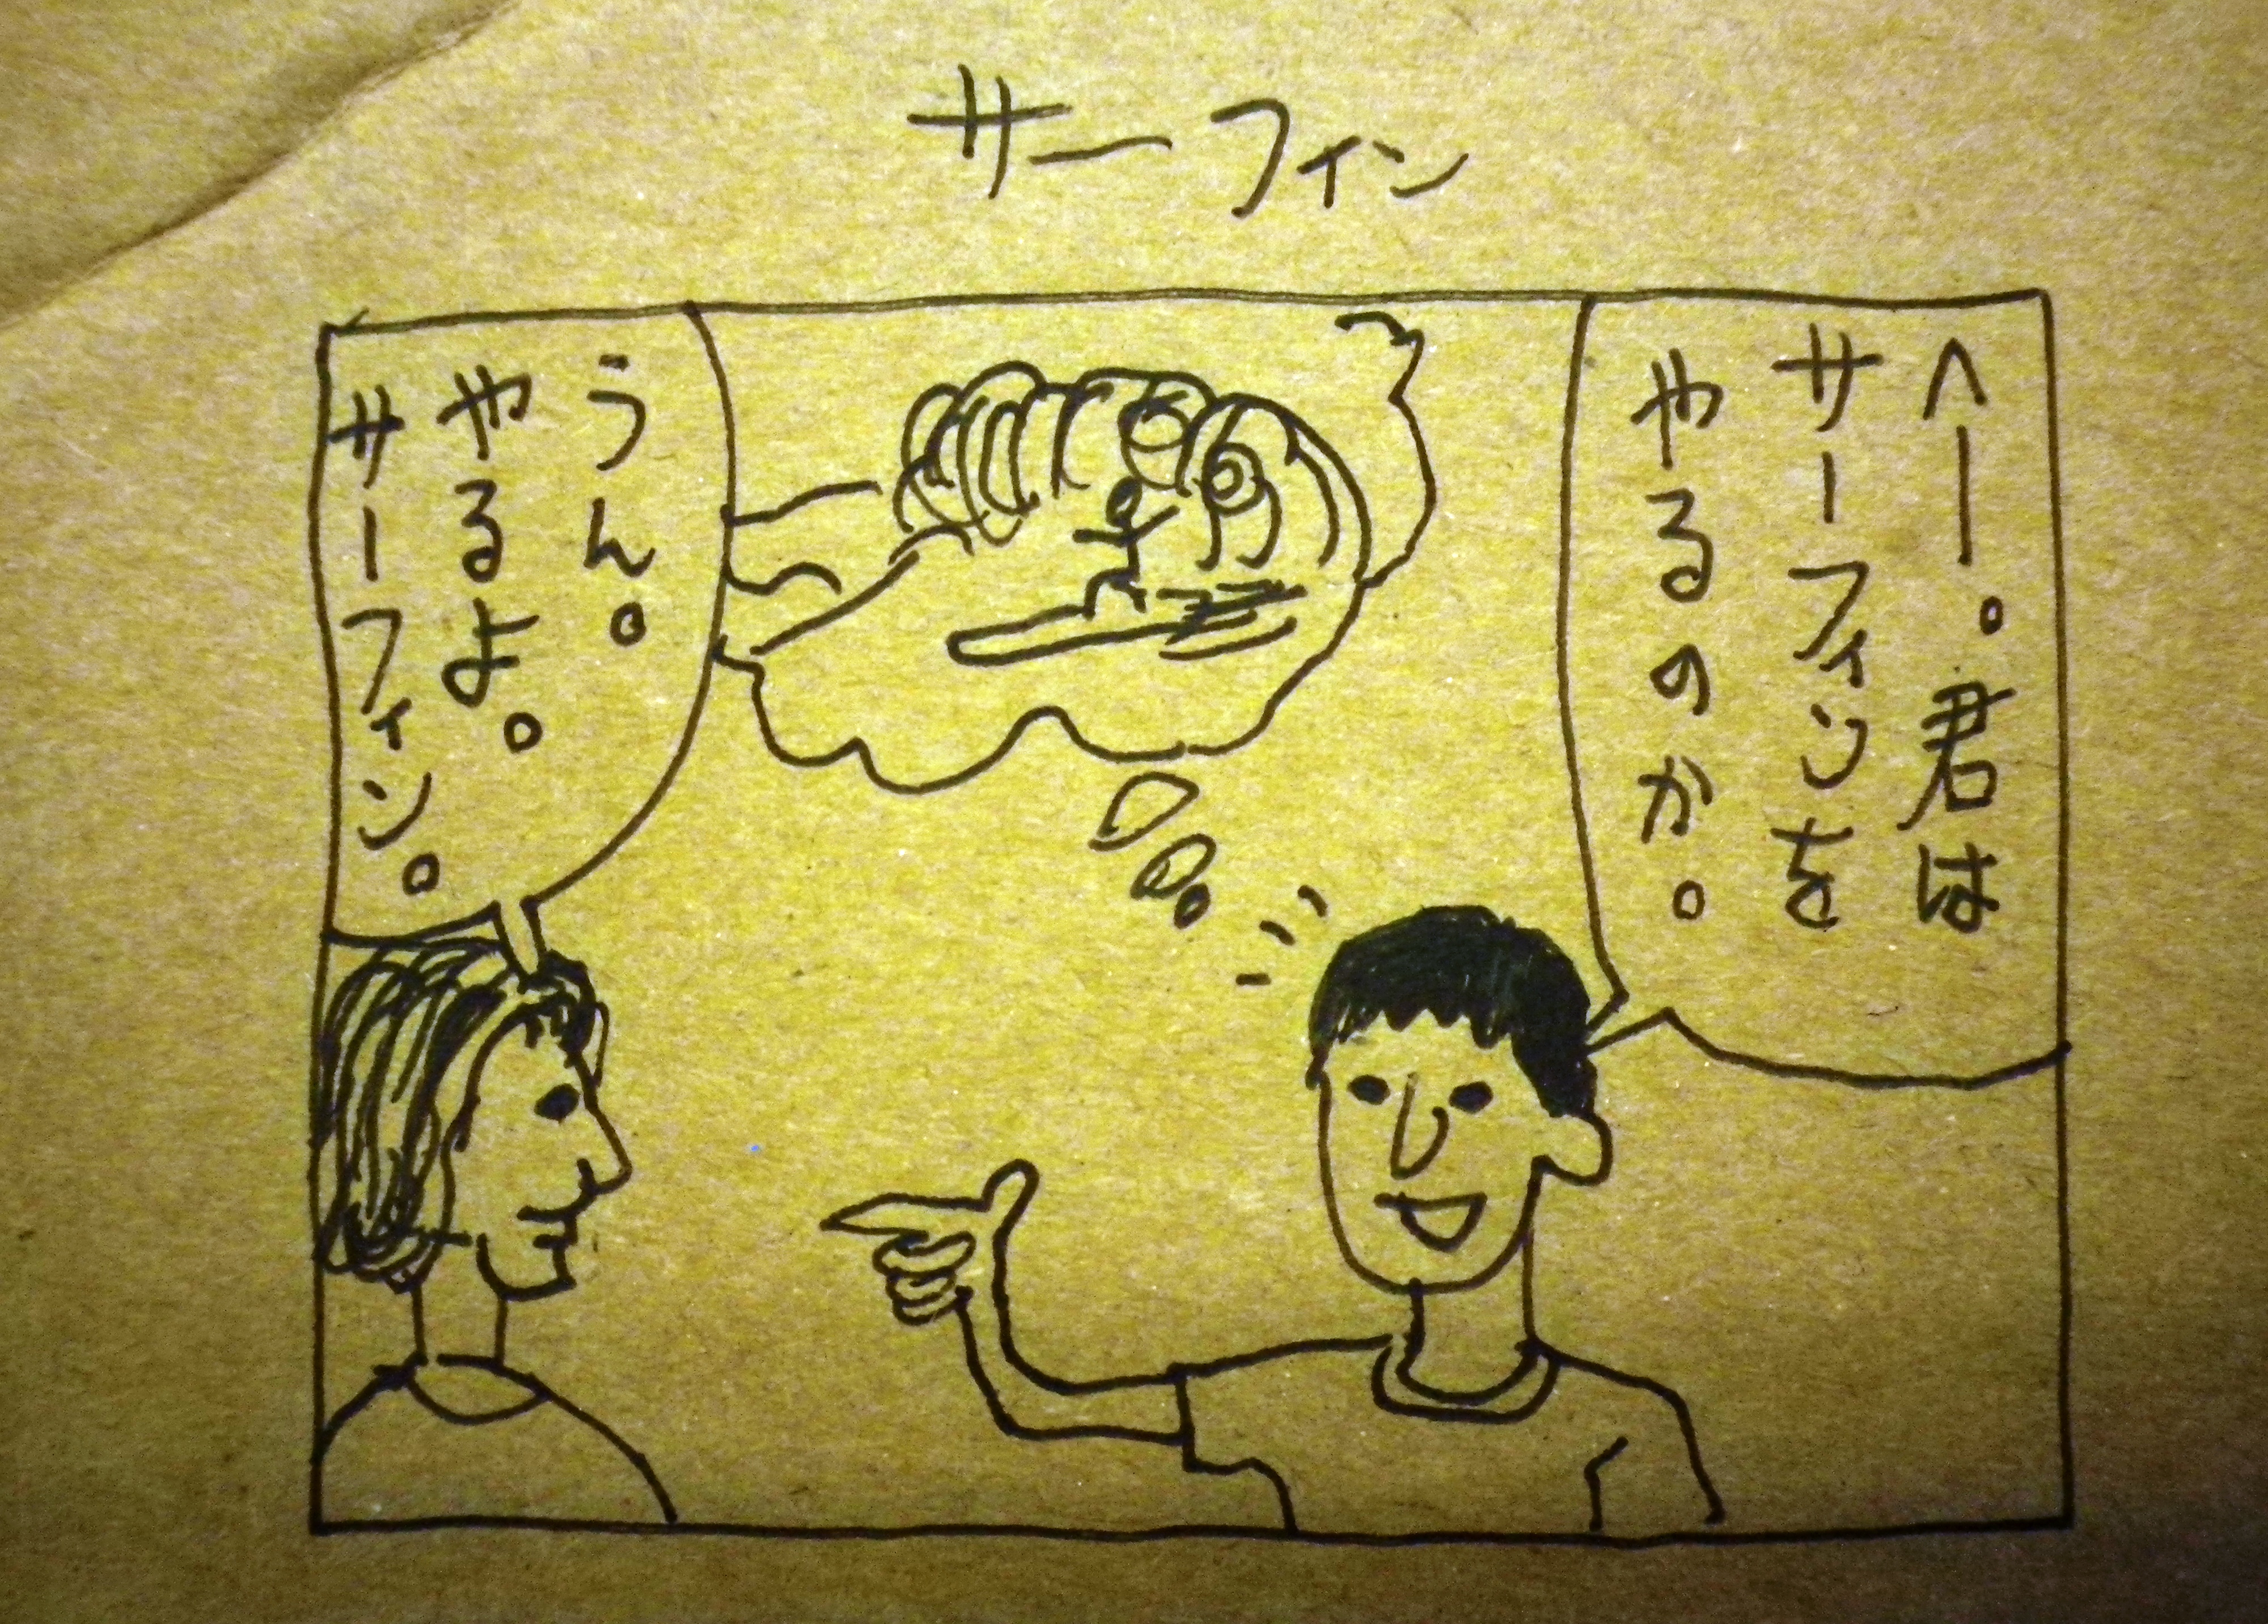 サーフィン
へー。君は
サーフィンを
やるのか。
うん。
やるよ。
サーフィン。